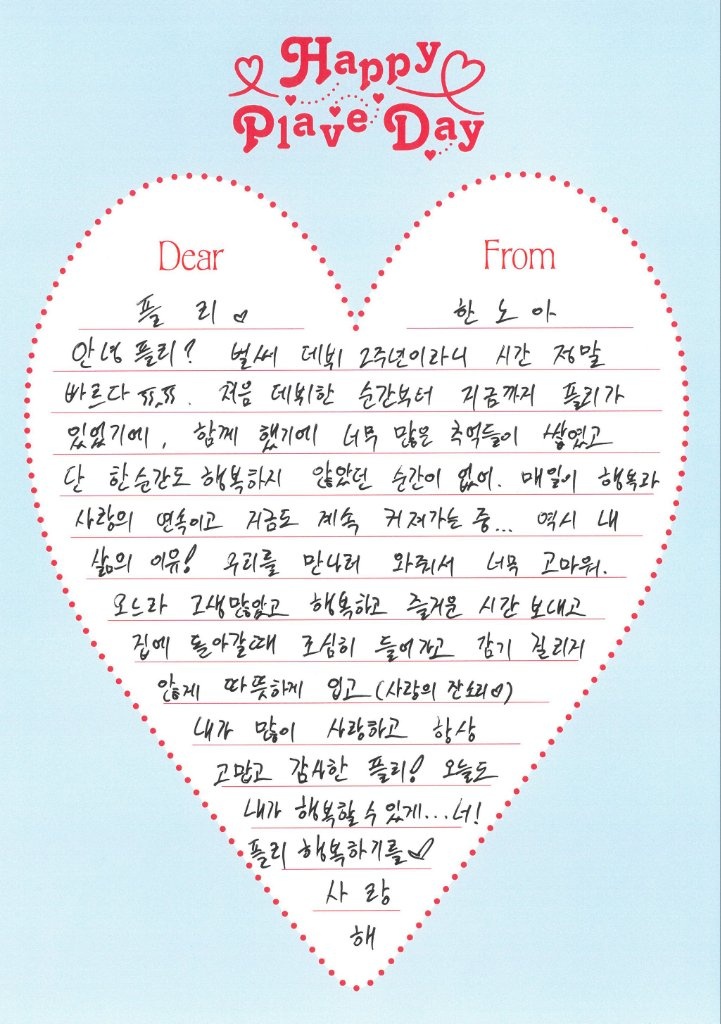 Happy
Plave Day
Dear
From
플 리 ♡
한 노 아
안녕 플리? 벌써 데뷔 2주년이라니 시간 정말
빠르다 ㅠ.ㅠ. 처음 데뷔한 순간부터 지금까지 플리가
있었기에, 함께 했기에 너무 많은 추억들이 쌓였고
단 한순간도 행복하지 않았던 순간이 없어. 매일이 행복과
사랑의 연속이고 지금도 계속 커져가는 중... 역시 내
삶의 이유! 우리를 만나러 와줘서 너무 고마워.
오느라 고생많았고 행복하고 즐거운 시간 보내고
집에 돌아갈때 조심히 들어가고 감기 걸리지
않게 따뜻하게 입고 (사랑의 잔소리♡)
내가 많이 사랑하고 항상
고맙고 감사한 플리! 오늘도
내가 행복할 수 있게...너!
플리 행복하기를♡
사 랑
해